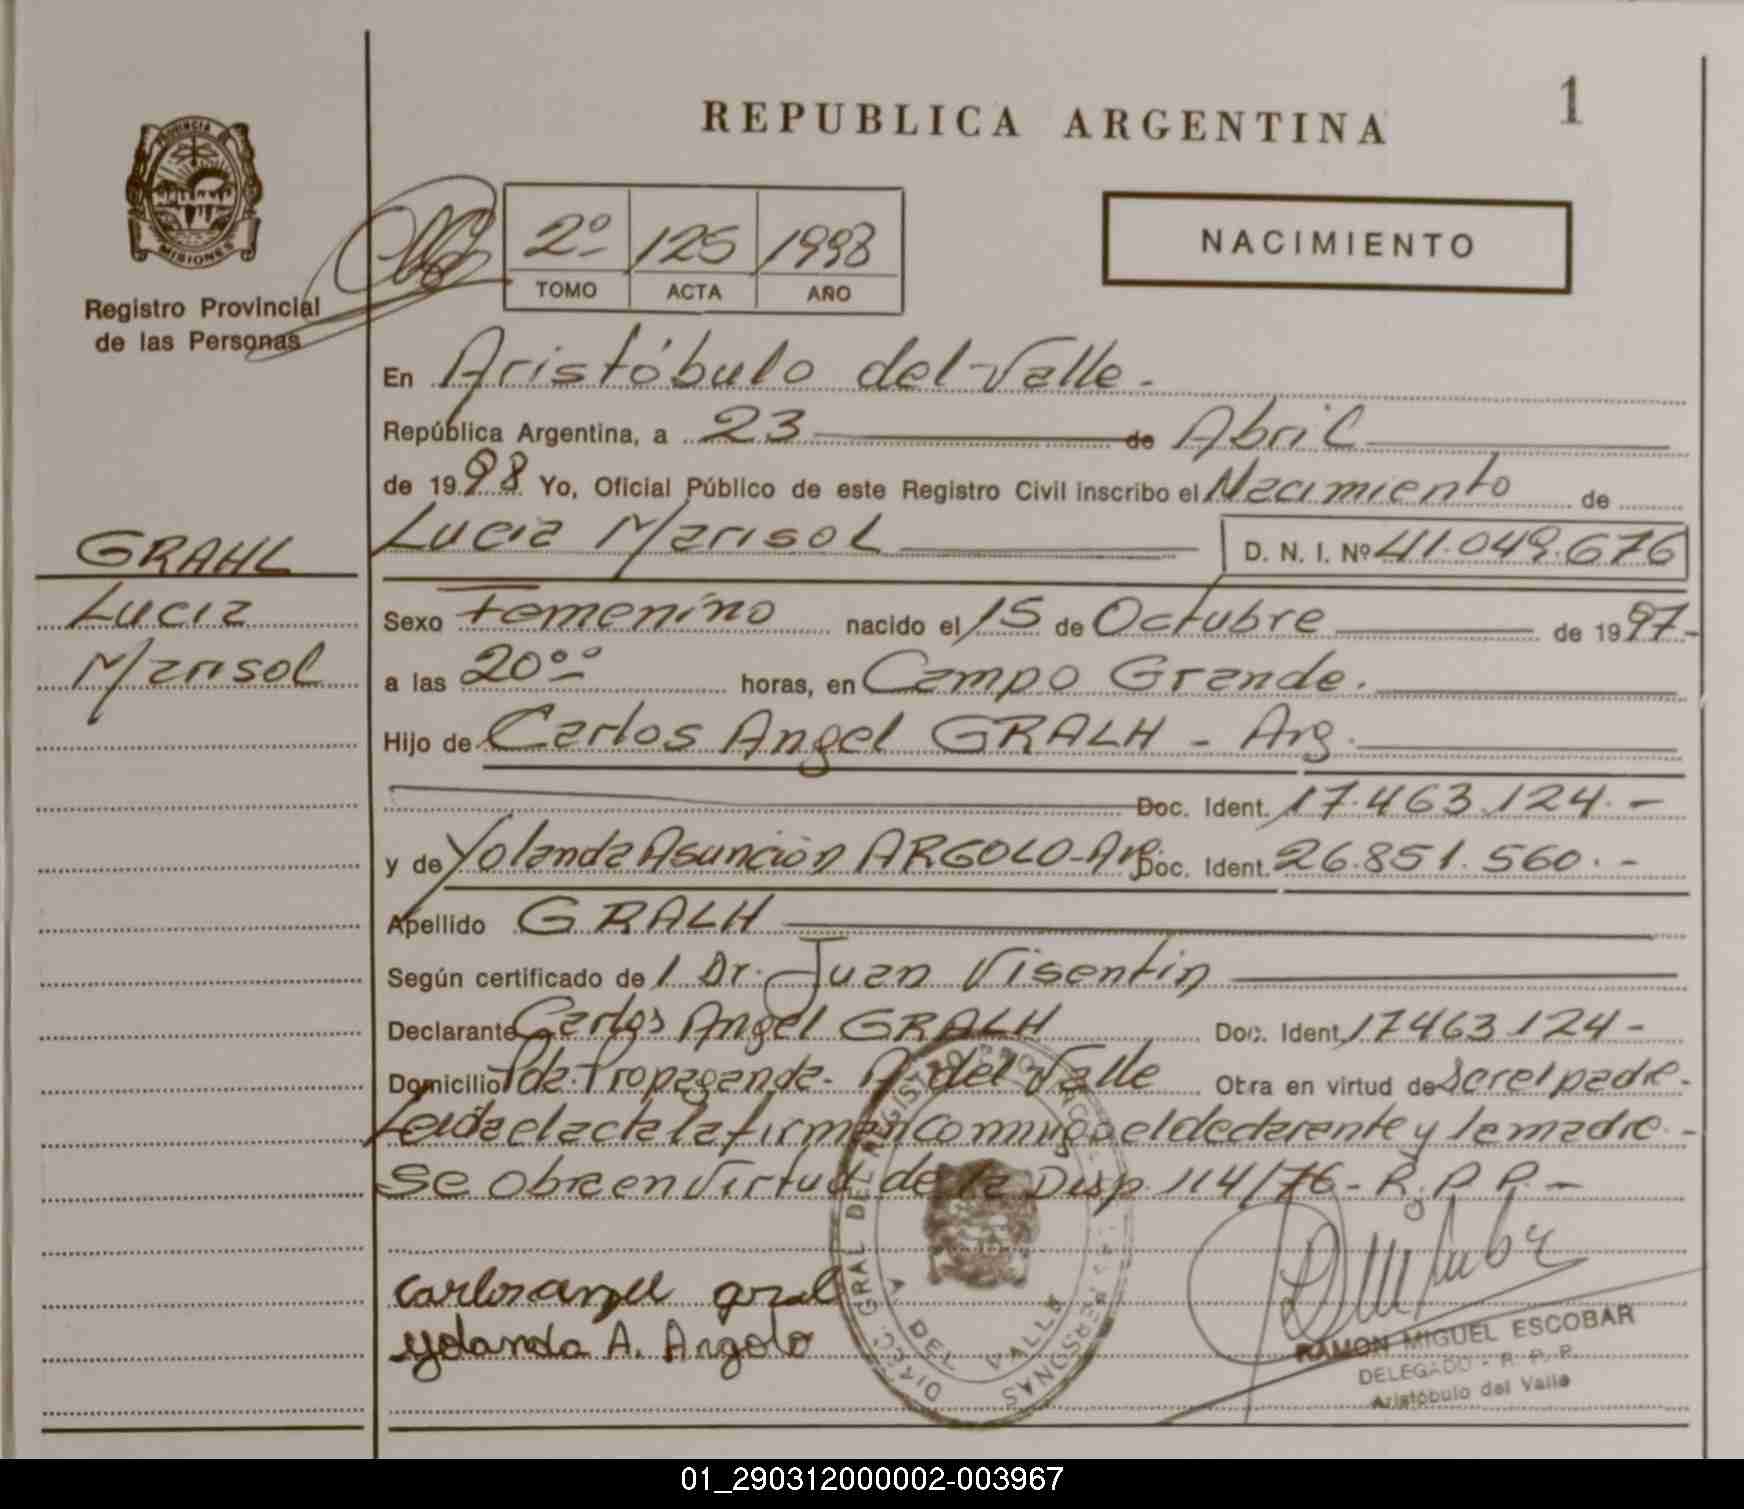 REPUBLICA ARGENTINA
1
PROVINCIA
MISIONES
Registro Provincial
de las Personas
2º 125 1998
TOMO ACTA AÑO
NACIMIENTO
En Aristóbulo del Valle.-
República Argentina, a 23 de Abril
de 1998 Yo, Oficial Público de este Registro Civil inscribo el Nacimiento de
Lucia Marisol D. N. I. Nº 41.049.676
GRAHL
Lucia
Marisol
Sexo Femenino nacido el 15 de Octubre de 1997.-
a las 20°° horas, en Campo Grande.
Hijo de Carlos Angel GRALH - Arg.
Doc. Ident. 17.463.124.-
y de Yolanda Asunción ARGOLO-Arg. Doc. Ident. 26.851.560.-
Apellido GRALH
Según certificado de l Dr. Juan Visentin
Declarante Carlos Angel GRALH Doc. Ident. 17463.124-
Domicilio Pda. Propaganda- A del Valle Otra en virtud de ser el padre.-
Leida el acta la firman conmigo el declarante y la madre.-
Se obra en virtud de la Disp. 114/76-R.P.P.-
carlos angel gral
yolanda A. Argolo
DIREC. GRAL DEL REGISTRO PROV. DE LAS PERSONAS
A DEL VALLE
RAMON MIGUEL ESCOBAR
DELEGADO - R. P. P.
Aristóbulo del Valle
01_290312000002-003967